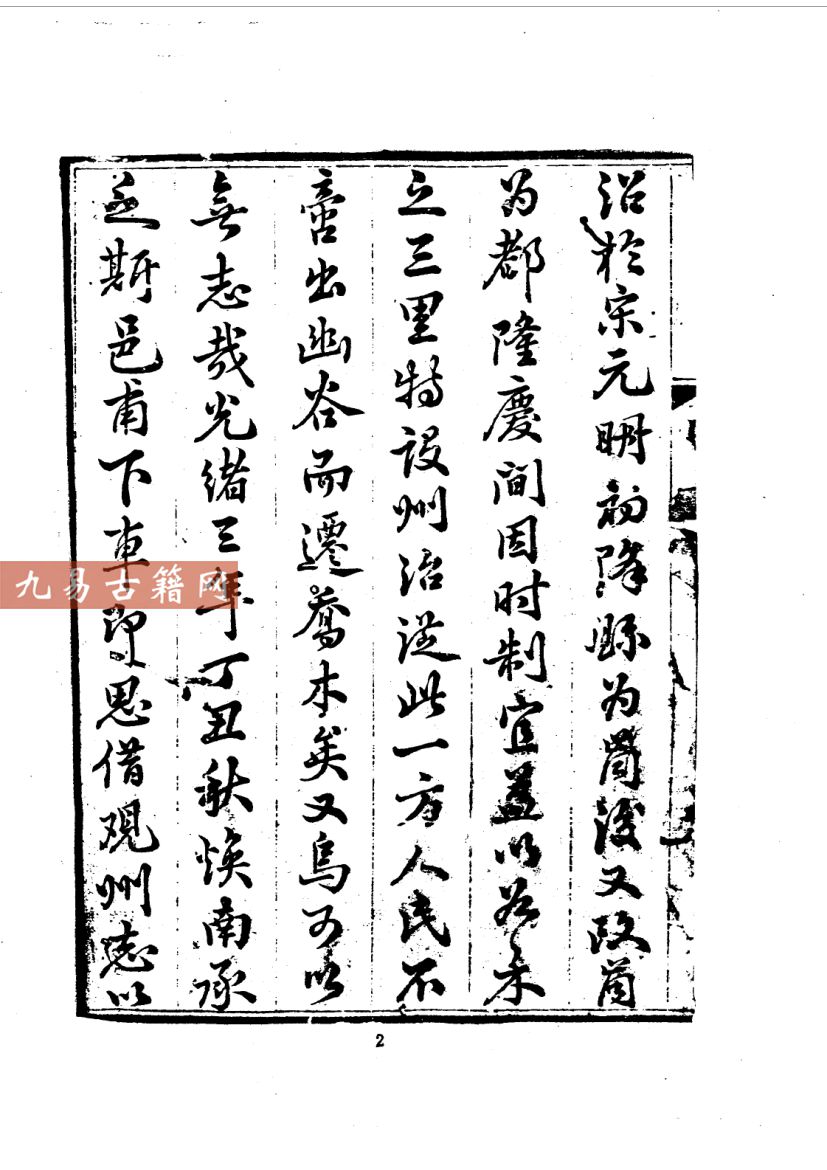 沿於宋元明初降縣为啚後又改啚
为都隆慶间因时制宜益以
之三里特设州治從此一方人民不
啻出幽谷而遷喬木矣又烏可以
無志哉光緒三年丁丑秋焕南承
乏斯邑甫下車即思借观州志以
2
九易古籍网